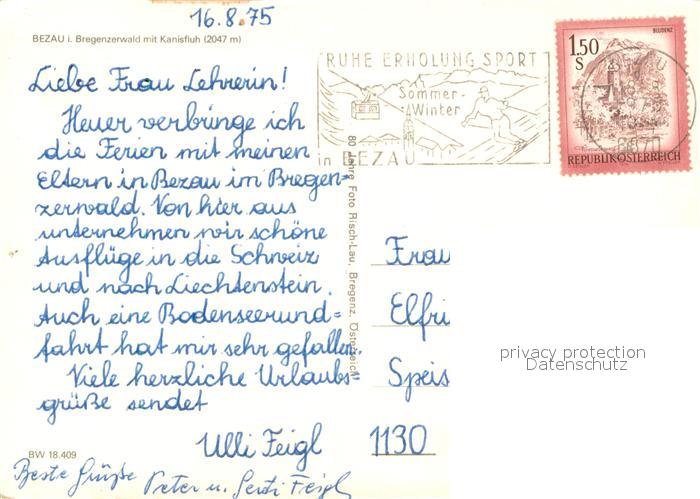 16.8.75
BEZAU i. Bregenzerwald mit Kanisfluh (2047 m)
Liebe Frau Lehrerin!
Heuer verbringe ich
die Ferien mit meinen
Eltern in Bezau im Bregen=
zerwald. Von hier aus
unternehmen wir schöne
Ausflüge in die Schweiz
und nach Liechtenstein.
Auch eine Bodenseerund=
fahrt hat mir sehr gefallen.
Viele herzliche Urlaubs=
grüße sendet
Ulli Feigl
BW 18.409
Beste Grüße Peter u. Feigl
80 Jahre Foto Risch-Lau, Bregenz, Österreich
RUHE ERHOLUNG SPORT
Sommer-
Winter
in BEZAU
BLUDENZ
1.50
S
REPUBLIK ÖSTERREICH
Frau
Elfri
Speis
1130
privacy protection
Datenschutz